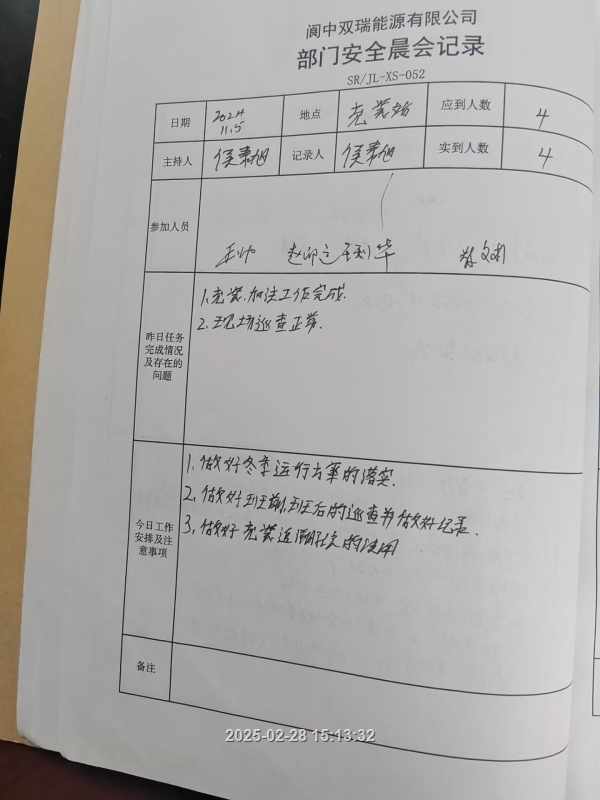 阆中双瑞能源有限公司
部门安全晨会记录
SR/JL-XS-052
日期 2024 11.5 地点 充装站 应到人数 4
主持人 侯素旭 记录人 侯素旭 实到人数 4
参加人员 王帅
昨日任务完成情况及存在的问题
1.充装.加注工作完成.
2.现场巡查正常.
今日工作安排及注意事项
1、做好冬季运行方案的落实.
2、做好班前班后的巡查并做好记录.
3、做好充装追溯系统的使用
备注
2025-02-28 15:13:32